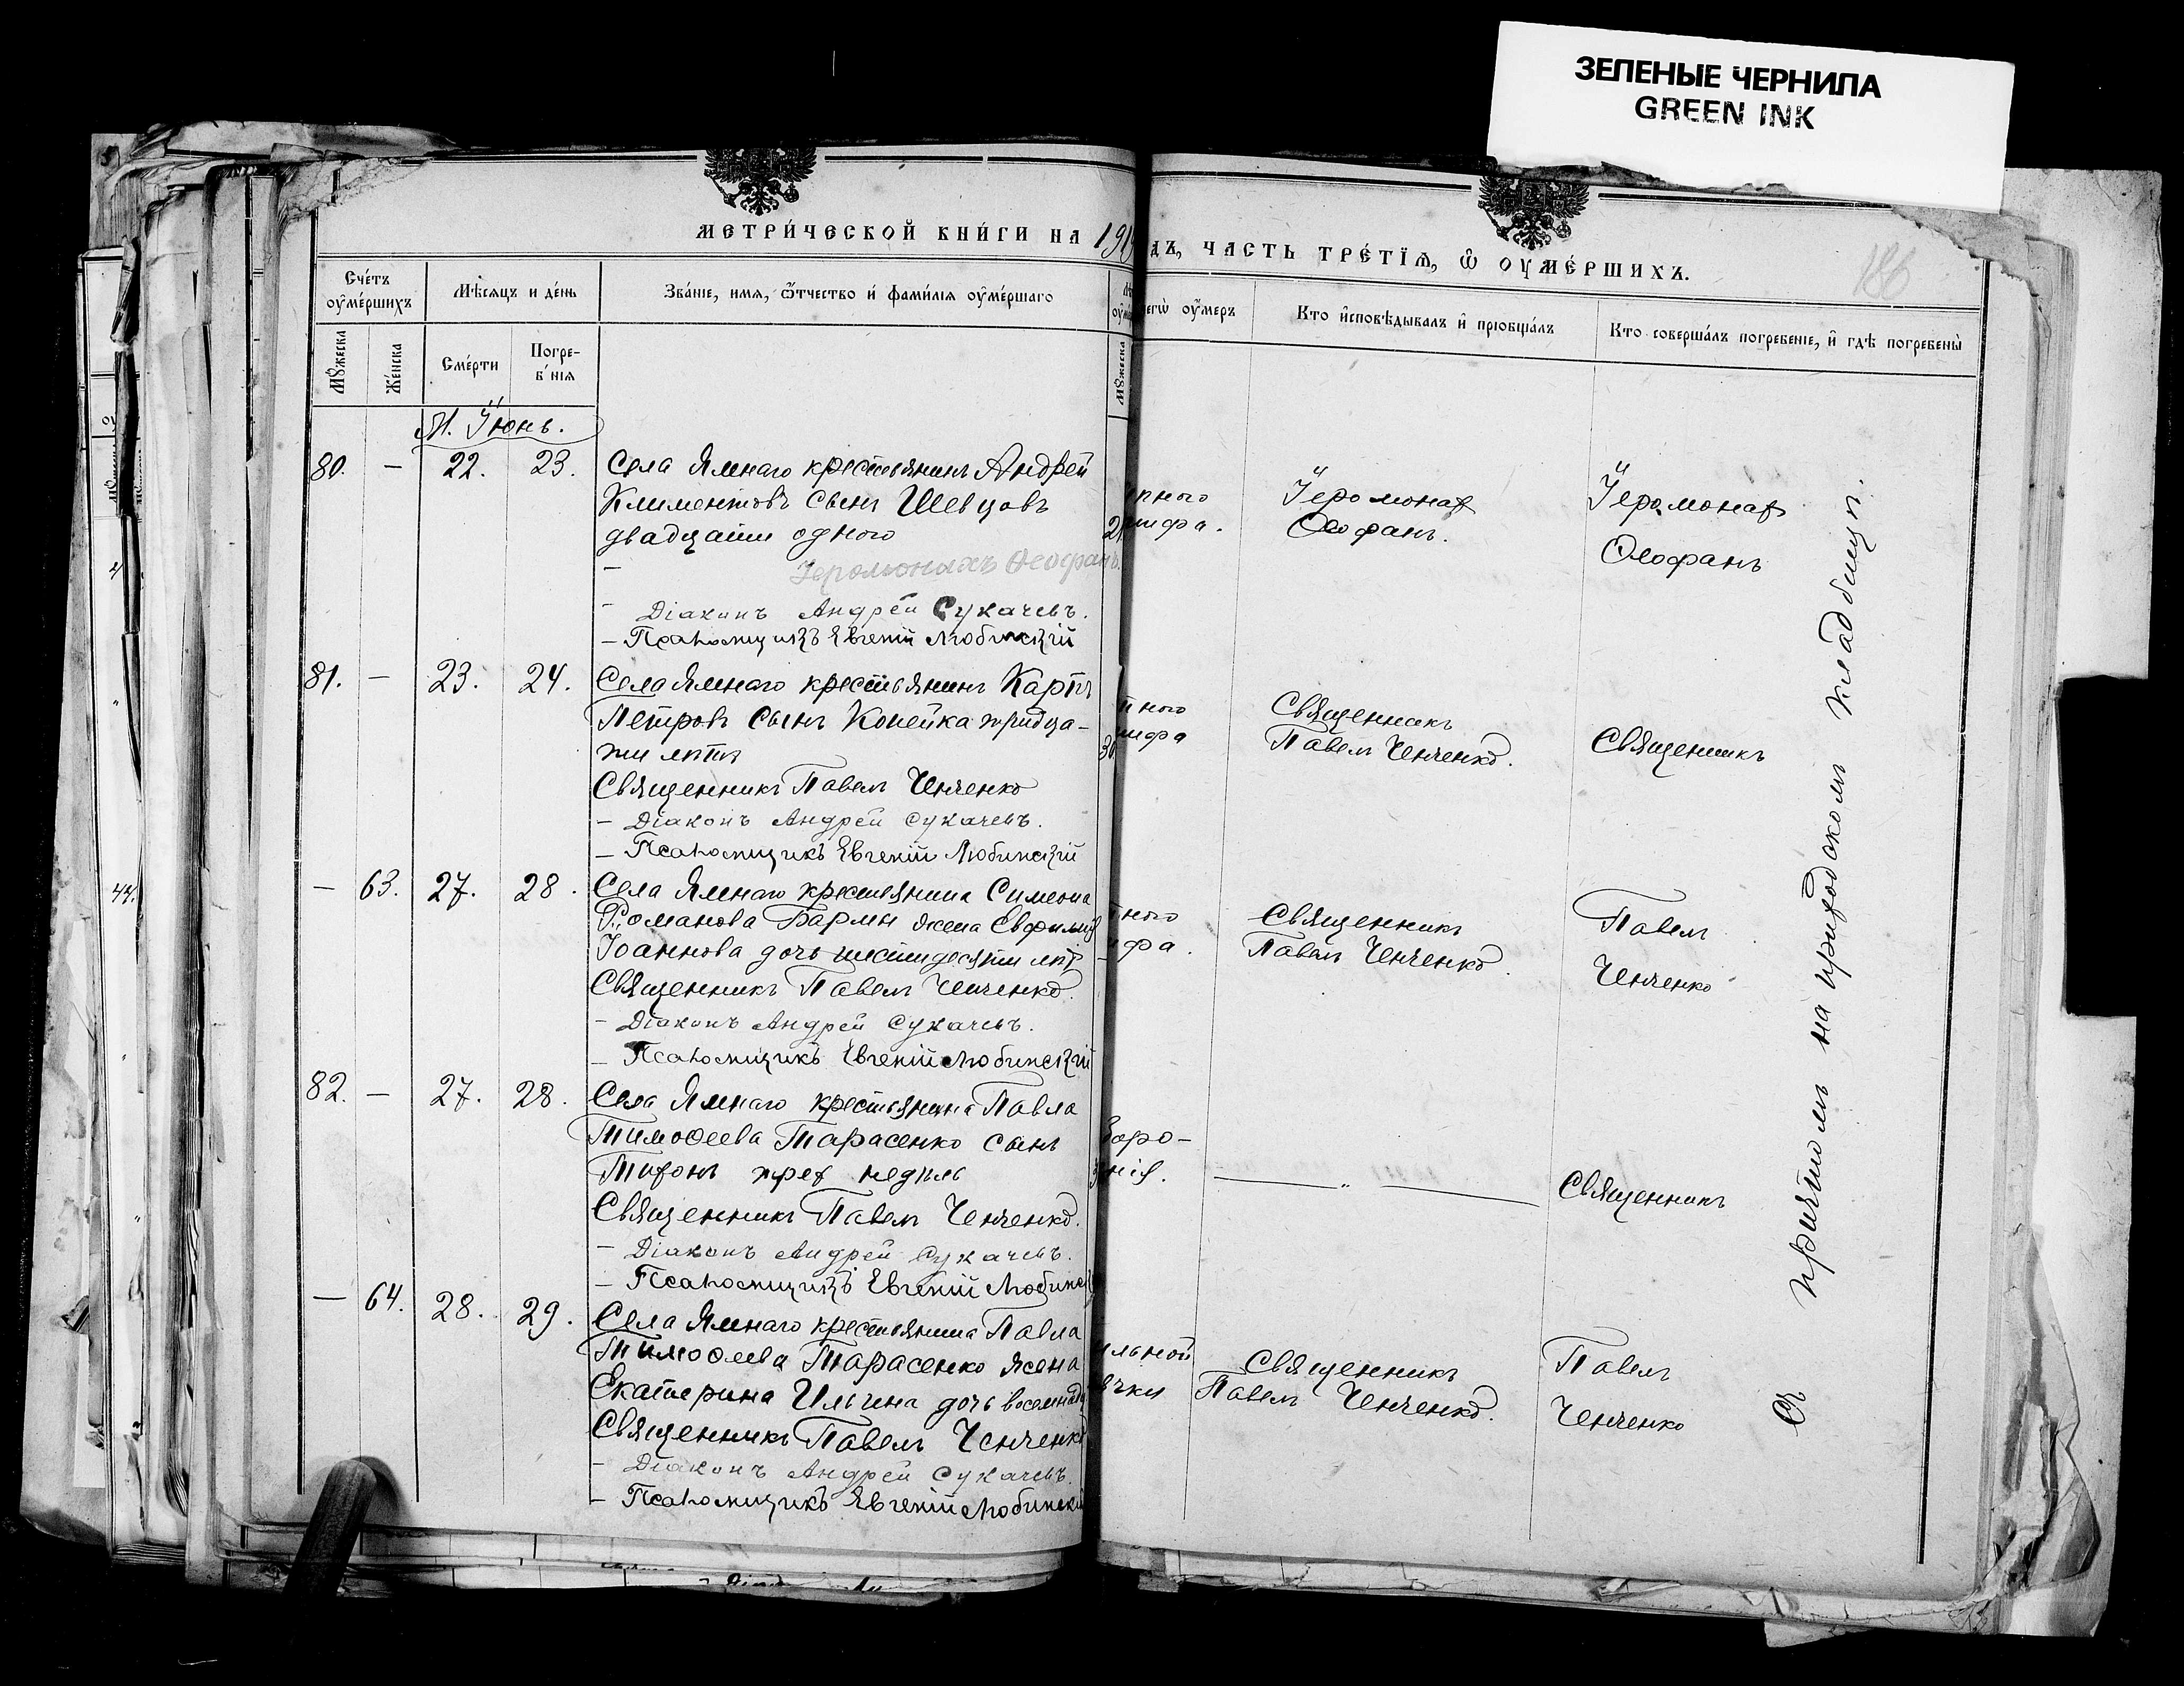 ЗЕЛЕНЫЕ ЧЕРНИЛА
GREEN INK
МЕТРИ́ЧЕСКОЙ КНИ́ГИ НА 191
ДЪ, ЧАСТЬ ТРЕ́ТІѦ, Ѽ ОУМЕ́РШИХЪ.
186
Сче́тъ оуме́ршихъ
Мѣ́сяцъ и де́нь
Зва́ніе, имя, ѿтчество и фами́лія оуме́ршаго
егѡ̀ оу́меръ
Кто и҆сповѣ́дывалъ и҆ пріобща́лъ
Кто соверша́лъ погребе́ніе, и҆ гдѣ̀ погребены̀
Мꙋжеска
Же́нска
Сме́рти
Погребе́нія
Мꙋжеска
М. Іюнь.
80. — 22. 23. Села Ямнаго крестьянинъ Андрей
Климентовъ сынъ Шевцовъ
двадцати одного
Іеромонахъ Ѳеофанъ.
— Діаконъ Андрей Сукачевъ.
— Псаломщикъ Евгеній Любинскій
тифа.
Іеромонах
Ѳеофанъ.
Іеромонах
Ѳеофанъ
81. — 23. 24. Села Ямнаго крестьянинъ Карпъ
Петровъ сынъ Копейка тридца-
ти лѣтъ
Священникъ Павелъ Ченченко
— Діаконъ Андрей Сукачевъ.
— Псаломщикъ Евгеній Любинскій
30
тифа
Священникъ
Павелъ Ченченко.
Священникъ
— 63. 27. 28. Села Ямнаго крестьянина Симеона
Романова Бармы жена Евфимія
Іоаннова дочь шестидесяти лѣт
Священникъ Павелъ Ченченко.
— Діаконъ Андрей Сукачевъ.
— Псаломщикъ Евгеній Любинскій
Священникъ
Павелъ Ченченко.
Павелъ
Ченченко
82. — 27. 28. Села Ямнаго крестьянина Павла
Тимоѳеева Тарасенко сынъ
Тихонъ трех недѣль
Священникъ Павелъ Ченченко.
— Діаконъ Андрей Сукачевъ.
— Псаломщикъ Евгеній Любинск
— „ —
Священникъ
— 64. 28. 29. Села Ямнаго крестьянина Павла
Тимоѳеева Тарасенко жена
Екатерина Ильина дочь восемнадц
Священникъ Павелъ Ченченко
— Діаконъ Андрей Сукачевъ.
— Псаломщикъ Евгеній Любинскі
Священникъ
Павелъ Ченченко.
Павелъ
Ченченко
Съ причтомъ на приходскомъ кладбищѣ.